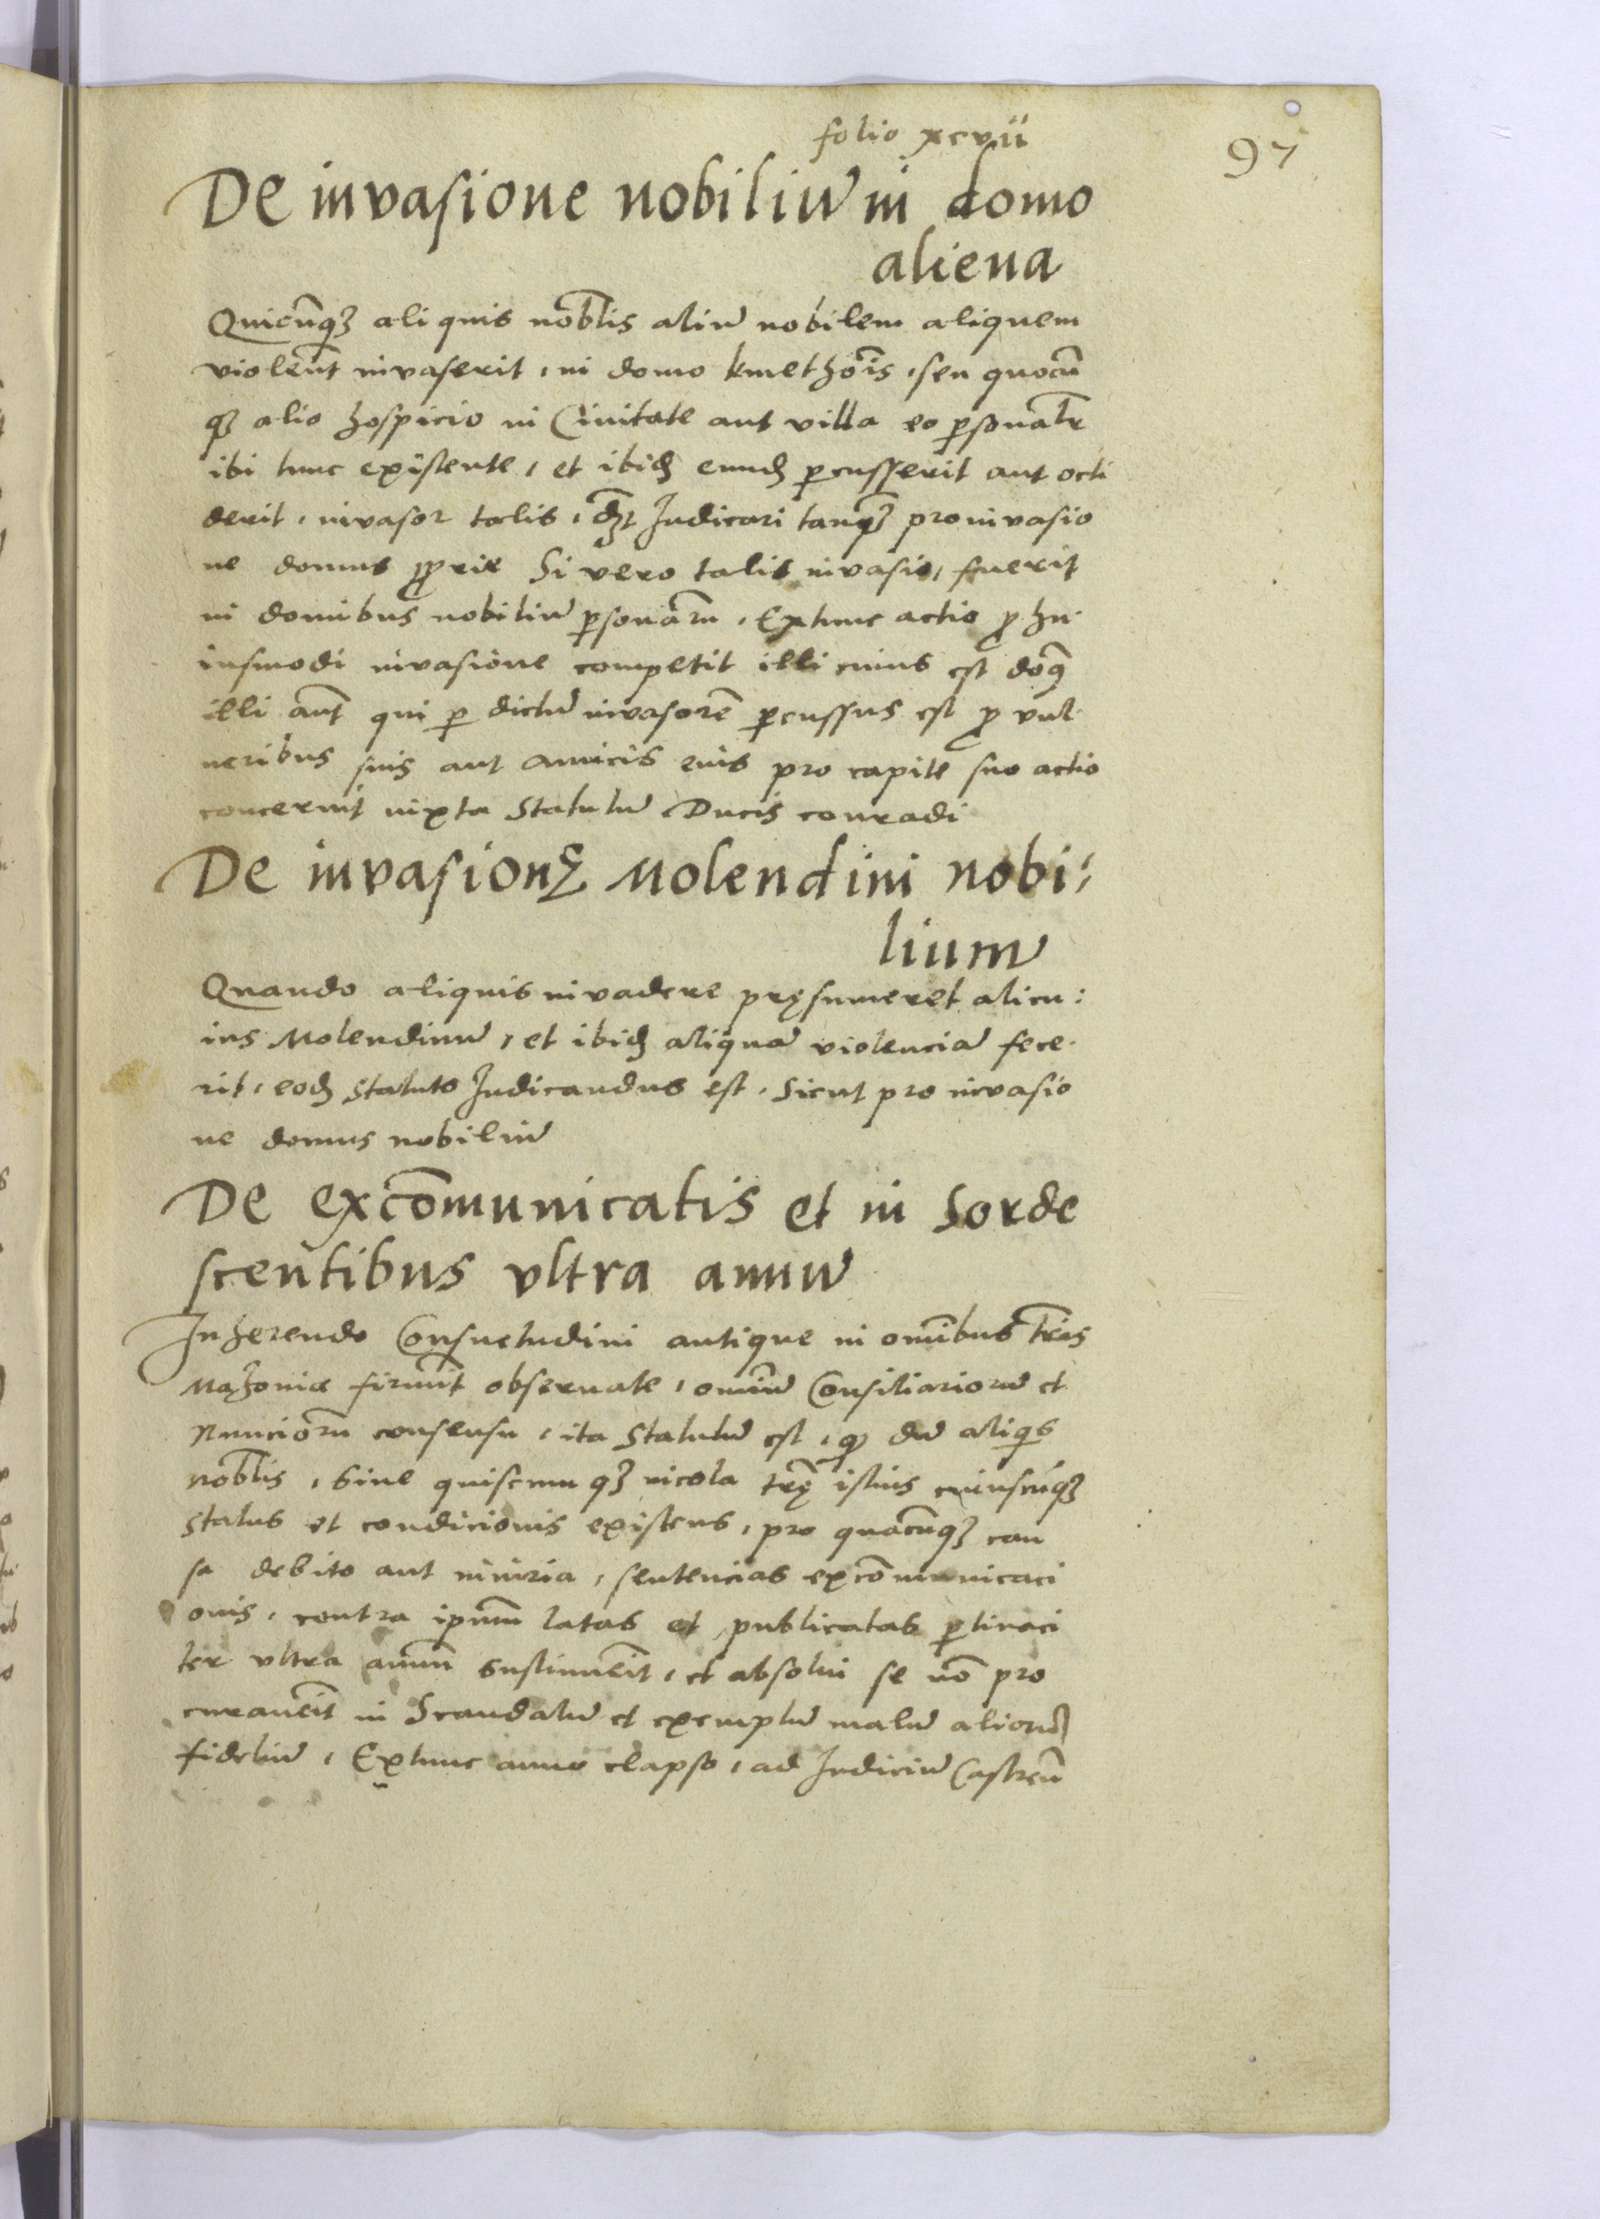 folio xcvii
97
De invasione nobiliū in domo
aliena
Quicūqȝ aliquis nob̄lis aliū nobilem aliquem
violen̄t invaserit, in domo kmethōis, seu quocū
qȝ alio hospicio in Civitate aut villa eo ꝑsonalr̄
ibi tunc existente, et ibidȝ eundȝ ꝑcusserit aut occi
derit, invasor talis, dȝ Judicari tanqȝ pro invasio
ne domus ꝓprie Si vero talis invasio, fuerit
in domibus nobiliū ꝑsonarū, Extunc actio ꝓ hu
iusmodi invasione competit illi cuius est domꝰ
illi aūt qui ꝑ dictū invasorē ꝑcussus est ꝓ vul
neribus suis aut amicis eius pro capite suo actio
concernit iuxta Statutū Ducis conradi
De invasionȩ Molendini nobi:
lium
Quando aliquis invadere pręsumeret alicu:
ius Molendinū, et ibidȝ aliquā violenciā fece
rit, eodȝ Statuto Judicandus est, Sicut pro invasio
ne domus nobiliū
De excōmunicatis et in Sorde
scentibus vltra annū
Inherendo Consuetudini antique in omībus tr̄is
Mazoviæ firmit̄ observate, omniū Consiliariorū et
Nunciorū consensu, ita Statutū est, qȝ dū aliqis
nob̄lis, Sive quiscumqȝ incola tr̄ę istius cuiuscūqȝ
Status et condicionis existens, pro quacūqȝ cau
sa debito aut iniuria, sentencias excōmunicaci
onis, contra ipsum latas et publicatas ꝑtinaci
ter vltra annū sustinuerit, et absolui se nō pro
curaverit in Scandalū et exemplū malū aliorū
fideliū, Extunc anno elapso, ad Judiciū Castreñ